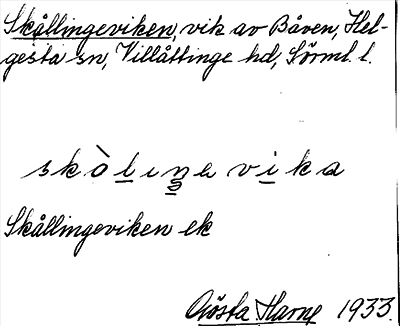 Skållingeviken, vik av Båven, Hel-
gesta sn, Villåttinge hd, Sörml. l.
skòlıŋe vika
Skållingeviken ek
Gösta Harne 1933.